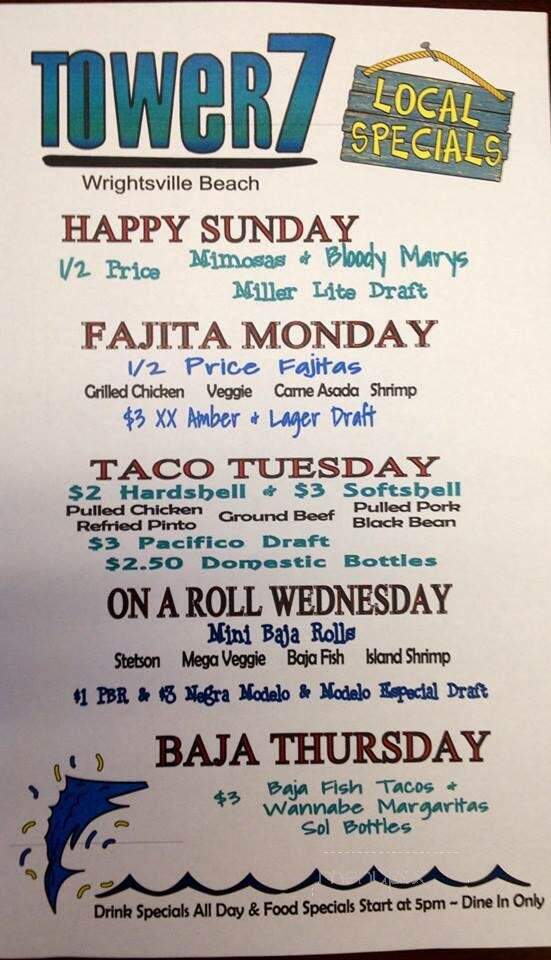 TOWER7
LOCAL
SPECIALS
Wrightsville Beach
HAPPY SUNDAY
1/2 Price Mimosas & Bloody Marys
Miller Lite Draft
FAJITA MONDAY
1/2 Price Fajitas
Grilled Chicken Veggie Carne Asada Shrimp
$3 XX Amber & Lager Draft
TACO TUESDAY
$2 Hardshell & $3 Softshell
Pulled Chicken Ground Beef Pulled Pork
Refried Pinto Black Bean
$3 Pacifico Draft
$2.50 Domestic Bottles
ON A ROLL WEDNESDAY
Mini Baja Rolls
Stetson Mega Veggie Baja Fish Island Shrimp
$1 PBR & $3 Negra Modelo & Modelo Especial Draft
BAJA THURSDAY
$3 Baja Fish Tacos &
Wannabe Margaritas
Sol Bottles
Drink Specials All Day & Food Specials Start at 5pm ~ Dine In Only